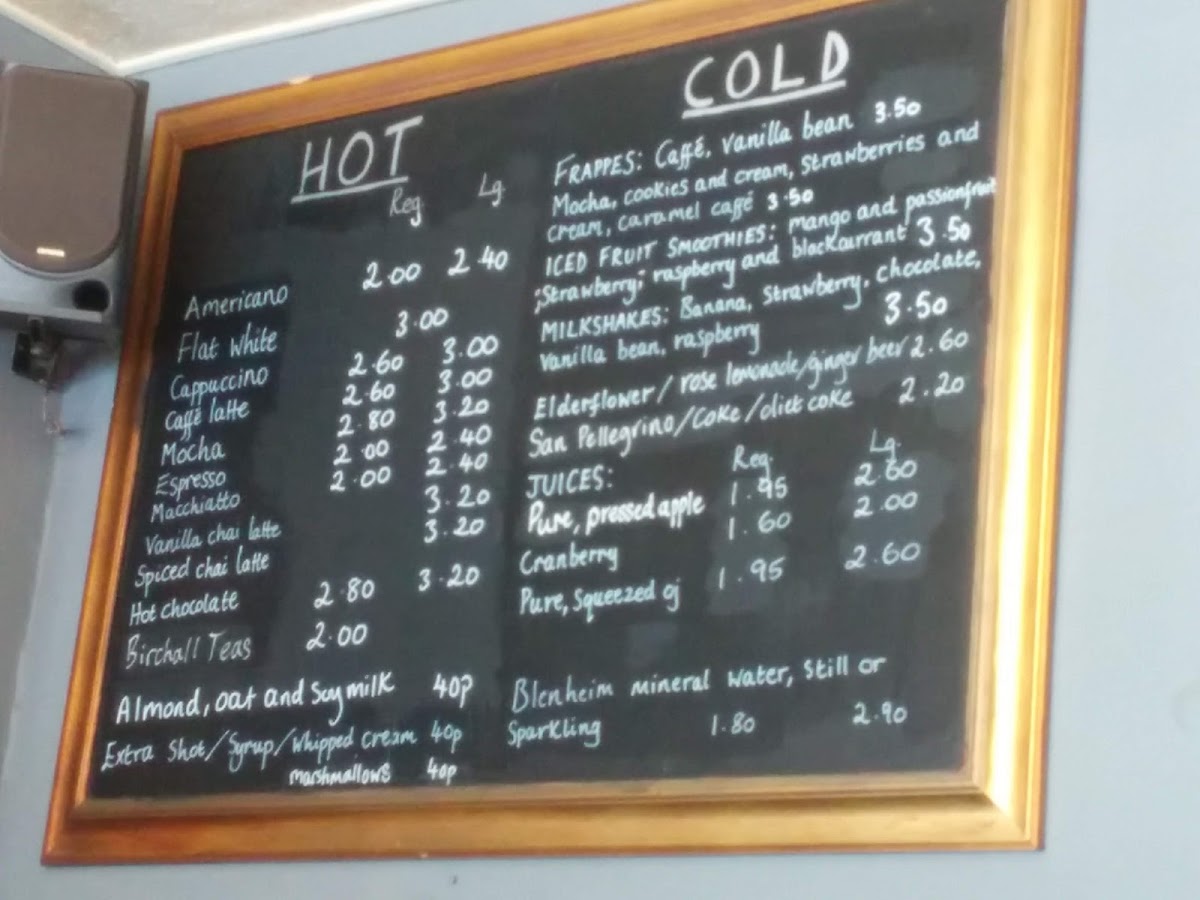 HOT
Reg Lg.
Americano 2.00 2.40
Flat White 3.00
Cappuccino 2.60 3.00
Caffé latte 2.60 3.00
Mocha 2.80 3.20
Espresso 2.00 2.40
Macchiatto 2.00 2.40
Vanilla chai latte 3.20
Spiced chai latte 3.20
Hot chocolate 2.80 3.20
Birchall Teas 2.00
Almond, oat and Soy milk 40p
Extra Shot/Syrup/Whipped Cream 40p
marshmallows 40p
COLD
FRAPPES: Caffé, Vanilla bean 3.50
Mocha, cookies and cream, Strawberries and
cream, caramel caffé 3.50
ICED FRUIT SMOOTHIES: mango and passionfruit
;Strawberry; raspberry and blackcurrant 3.50
MILKSHAKES: Banana, Strawberry, chocolate,
Vanilla bean, raspberry 3.50
Elderflower/rose lemonade/ginger beer 2.60
San Pellegrino/Coke/diet coke 2.20
JUICES: Reg. Lg.
Pure, pressed apple 1.95 2.60
Cranberry 1.60 2.00
Pure, Squeezed oj 1.95 2.60
Blenheim mineral water, Still or
Sparkling 1.80 2.90